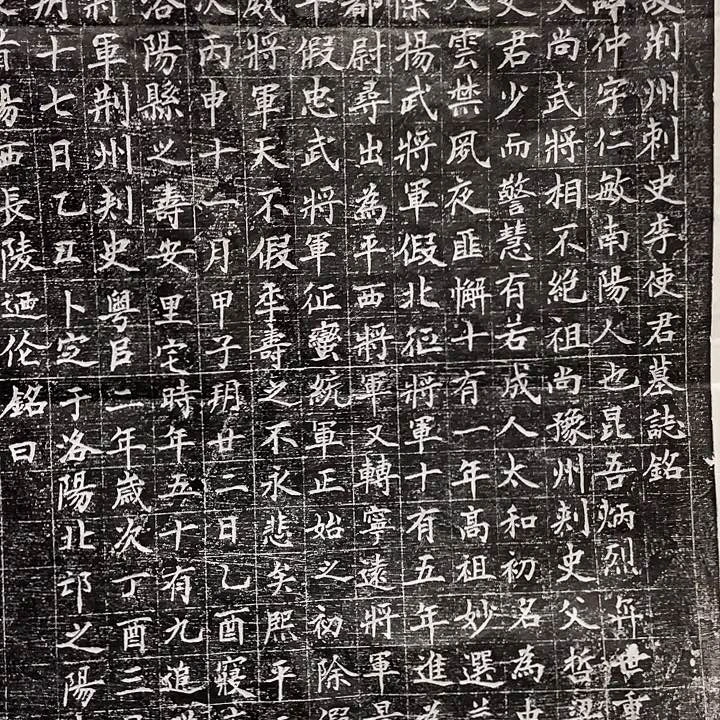 荊州刺史李使君墓誌銘
仲字仁敏南陽人也昆吾炳烈弈世重
尚武將相不絕祖尚豫州刺史父哲
君少而警慧有若成人太和初名為
雲禁夙夜匪懈十有一年高祖妙選
除揚武將軍假北征將軍十有五年進
都尉尋出為平西將軍又轉寧遠將軍
假忠武將軍征蠻統軍正始之初除假
威將軍天不假年壽之不永悲矣熙平
次丙申十一月甲子朔廿二日乙酉寢
洛陽縣之壽安里宅時年五十有九追
將軍荊州刺史粵㠯二年歲次丁酉三
十七日乙丑卜窆于洛陽北邙之陽
首陽西長陵迺作銘曰